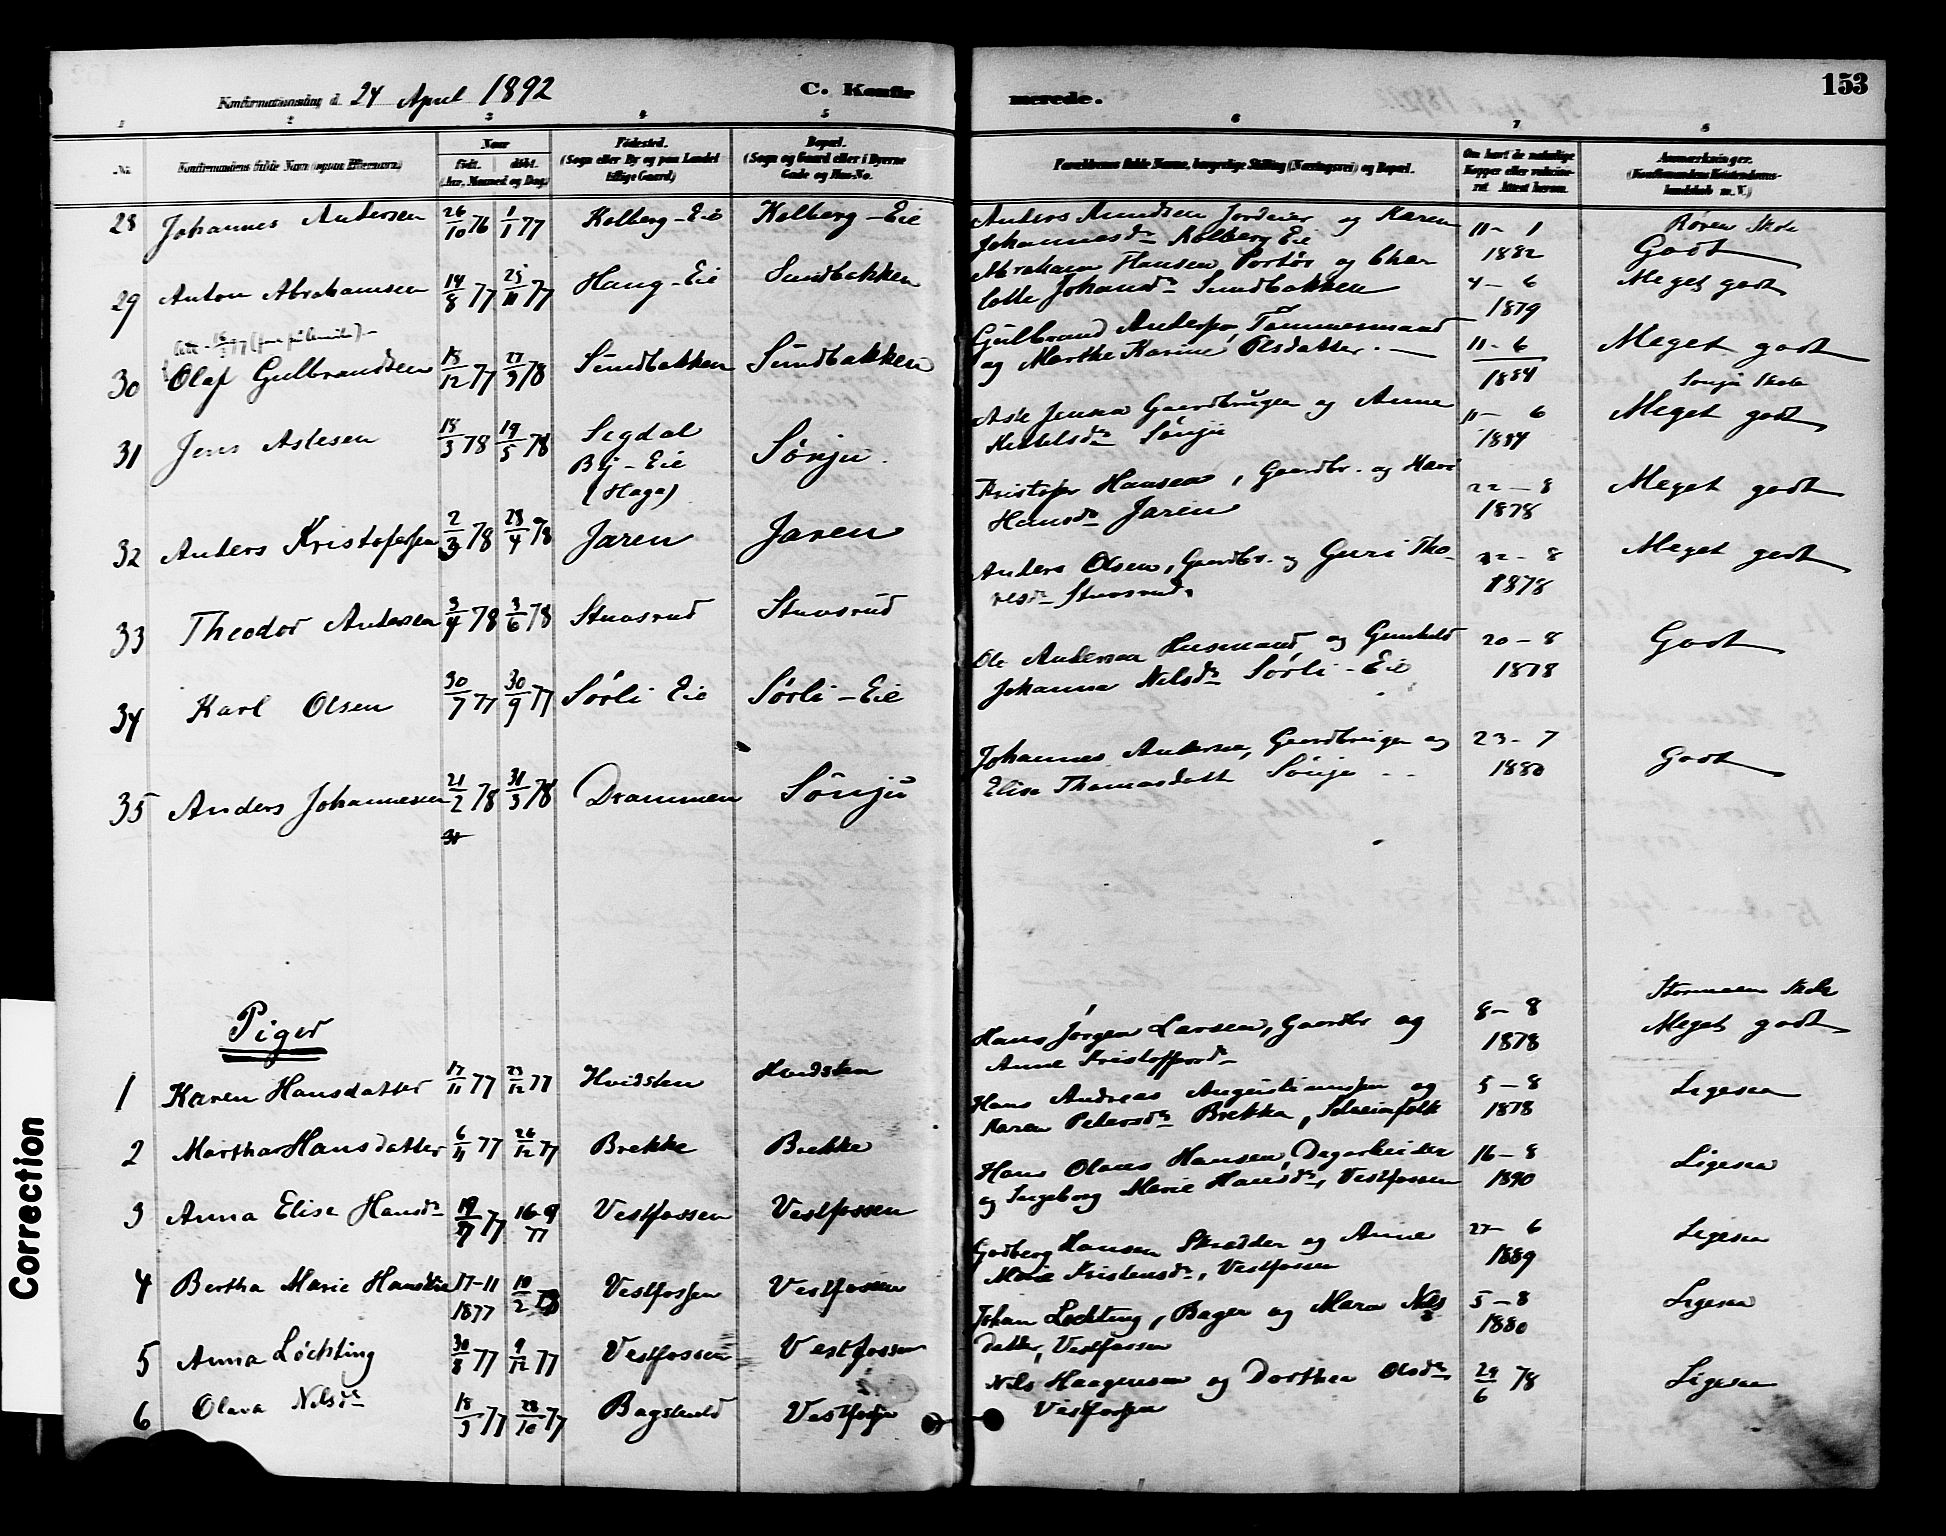 153
Konfirmationsdag d. 24 April 1892 C. Konfirmerede.
1 2 3 4 5 6 7 8
No. Konfirmandens fulde Navn (ogsaa Efternavn) Naar født. døbt. (Aar, Maaned og Dag) Fødested. (Sogn eller By og paa Landet tillige Gaard) Bopæl. (Sogn og Gaard eller i Byerne Gade og Hus-No. Forældrenes fulde Navne, borgerlige Stilling (Næringsvei) og Bopæl. Om havt de naturlige Kopper eller vaccineret Attest herom. Anmærkninger. (Konfirmandens Kristendomskundskab m. V.)
28 Johannes Andersen 26/10 76 1/1 77 Kolberg-Eie Kolberg-Eie Anders Amundsen Jordeier og Karen
Johannesd. Kolberg Eie 11-1 1882 Røren Skole Godt
29 Anton Abrahamsen 14/8 77 25/11 77 Haug-Eie Sundbakken Abraham Hansen Portør og Char
lotte Johansd. Sundbakken 4-6 1879 Meget godt
30 Olaf Gulbrandsen 18/12 77 27/3 78 Sundbakken Sundbakken Gulbrand Anderssen, Tømmermand
og Marthe Karine Olsdatter. 11-6 1884 Meget godt
31 Jens Aslesen 18/3 78 19/5 78 Sigdal
By-Eie
(Haga) Sønju. Asle Jensen Gaardbruger og Anne
Kittilsd. Sønju 11-6 1884 Sønju Skole Meget godt
32 Anders Kristofersen 2/3 78 28/4 78 Jaren Jaren Kristofer Hansen, Gaardbr. og Mari
Hansd. Jaren 22-8 1878 Meget godt
33 Theodor Andersen 3/4 78 9/6 78 Stuvsrud Stuvsrud Anders Olsen, Gaardbr. og Guri Tho-
resd. Stuvsrud. 22-8 1878 Meget godt
34 Karl Olsen 30/7 77 30/9 77 Sørli Eie Sørli-Eie Ole Andersen Husmand, og Gunhild
Johanna Nilsd. Sørli-Eie 20-8 1878 Godt
35 Anders Johannesen 21/2 78 31/3 78 Drammen Sønju Johannes Andersen, Gaardbruger og
Elise Thomasdatt Sønju 23-7 1880 Godt
31
Piger
1 Karen Hansdatter 17/11 77 23/12 77 Hvidsten Hvidsten Hans Jørgen Larsen, Gaardbr og
Anne Kristoffersd. 8-8 1878 Stormoen Skole Meget godt
2 Martha Hansdatter 6/11 77 26/12 77 Brekke Brekke Hans Andreas Augustinussen og
Karen Petersd. Brekka, Selveierfolk 5-8 1878 Ligesaa
3 Anna Elise Hansd. 19/7 77 16-9 77 Vestfossen Vestfossen Hans Olaus Hansen, Dagarbeider
og Ingeborg Marie Hansd., Vestfossen 16-8 1890 Ligesaa
4 Bertha Marie Hansd. 17-11 1877 10/2 78 Vestfossen Vestfossen Godberg Hansen Skrædder og Anne
Marie Kristensd., Vestfossen 27-6 1889 Ligesaa
5 Anna Løchting 30/8 77 9/12 77 Vestfossen Vestfossen Johan Løchting, Bager og Maren Nils
datter, Vestfossen 5-8 1880 Ligesaa
6 Olava Nilsd. 18/9 77 28/10 77 Bagstuld Vestfossen Nils Haagensen og Dorthea Olsd.
Vestfossen 29/6 78 Ligesaa
Correction